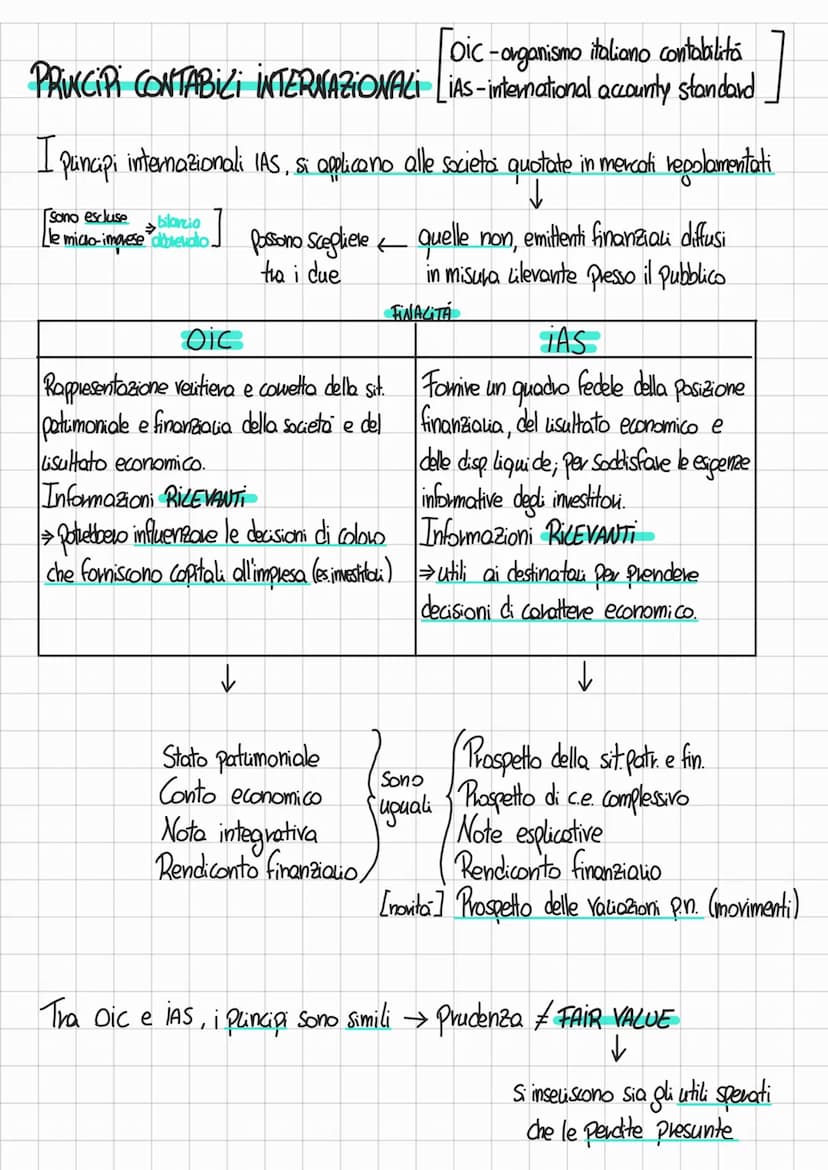 PRINCIPI CONTABILI INTERNAZIONALI
[OIC - organismo italiano contabilitá
IAS - international accounty standard]
I principi internazionali IAS, si applicano alle societá quotate in mercati regolamentati
↓
[sono escluse
le micro-imprese → bilancio
abbreviato]
possono scegliere ← quelle non, emittenti finanziali diffusi
tra i due
in misura rilevante presso il pubblico
FINALITÁ
OIC
Rappresentazione veritiera e corretta della sit.
patrimoniale e finanziaria della societá e del
risultato economico.
Informazioni RILEVANTI
→ potrebbero influenzare le decisioni di coloro
che forniscono capitali all'impresa (es. investitori)
IAS
Fornire un quadro fedele della posizione
finanziaria, del risultato economico e
delle disp. liquide; per soddisfare le esigenze
informative degli investitori.
Informazioni RILEVANTI
→ utili ai destinatari per prendere
decisioni di carattere economico.
↓
↓
Stato patrimoniale
Conto economico
Nota integrativa
Rendiconto finanziario
sono
uguali
Prospetto della sit. patr. e fin.
Prospetto di c.e. complessivo
Note esplicative
Rendiconto finanziario
[novitá] Prospetto delle variazioni p.n. (movimenti)
Tra OIC e IAS, i principi sono simili → Prudenza ≠ FAIR VALUE
↓
Si inseriscono sia gli utili sperati
che le perdite presunte